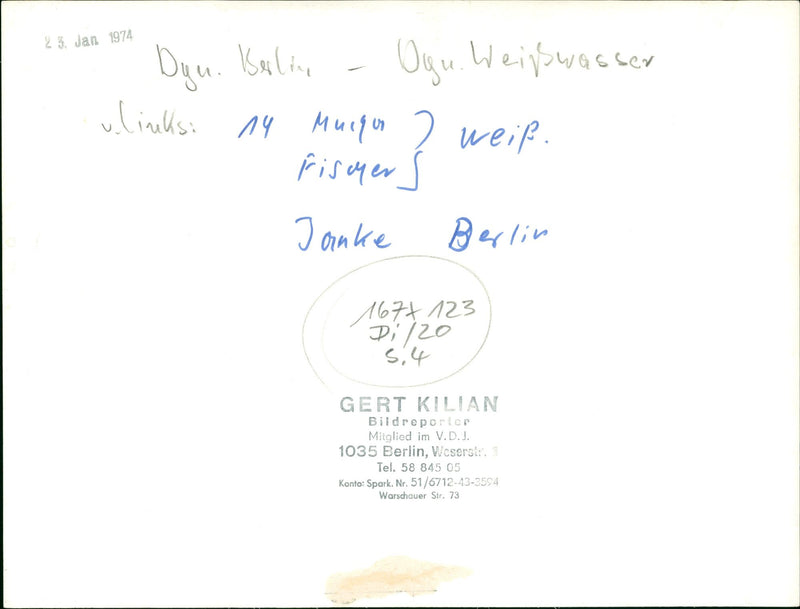 23. Jan 1974
Dyn. Berlin – Dyn. Weißwasser
v. links: 14 ) Weiß.
Fischer
Janke Berlin
167 x 123
Di/20
S. 4
GERT KILIAN
Bildreporter
Mitglied im V.D.J.
1035 Berlin, Weserstr.
Tel. 58 845 05
Konto: Spark. Nr. 51/6712-43-3594
Warschauer Str. 73